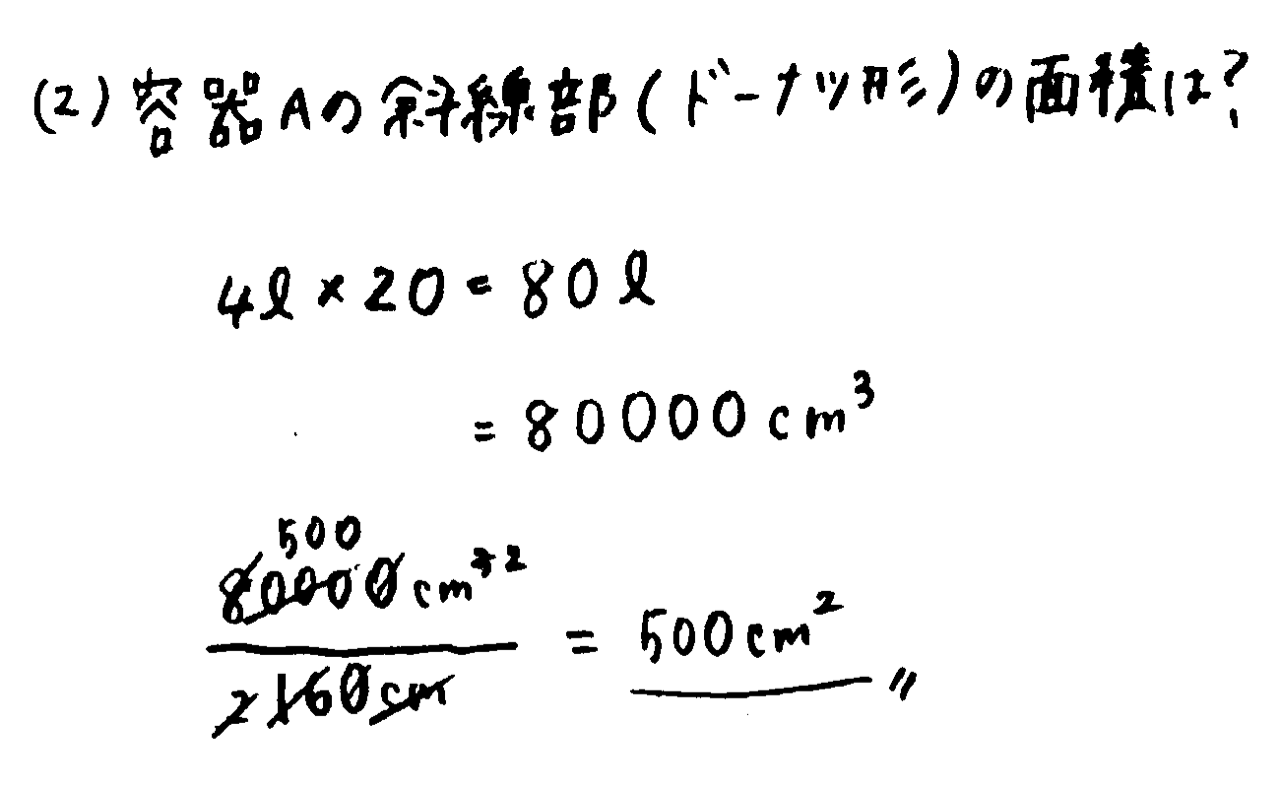 (2) 容器Aの斜線部(ドーナツ形)の面積は?
4l × 20 = 80l
= 80000 cm³
500
80000 cm³ ²
2 160 cm
= 500 cm² 〃